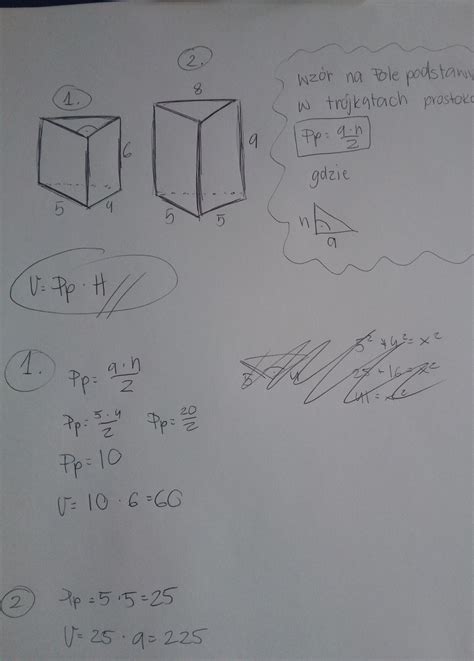 1.
6
5
4
2.
8
9
5
5
wzór na Pole podstawy
w trójkątach prostoką
Pp = a·h/2
gdzie
h
a
V = Pp · H
1.
Pp = a·h/2
Pp = 5·4/2 Pp = 20/2
Pp = 10
V = 10 · 6 = 60
5² + 4² = x²
25 + 16 = x²
41 = x²
2
Pp = 5 · 5 = 25
V = 25 · 9 = 225